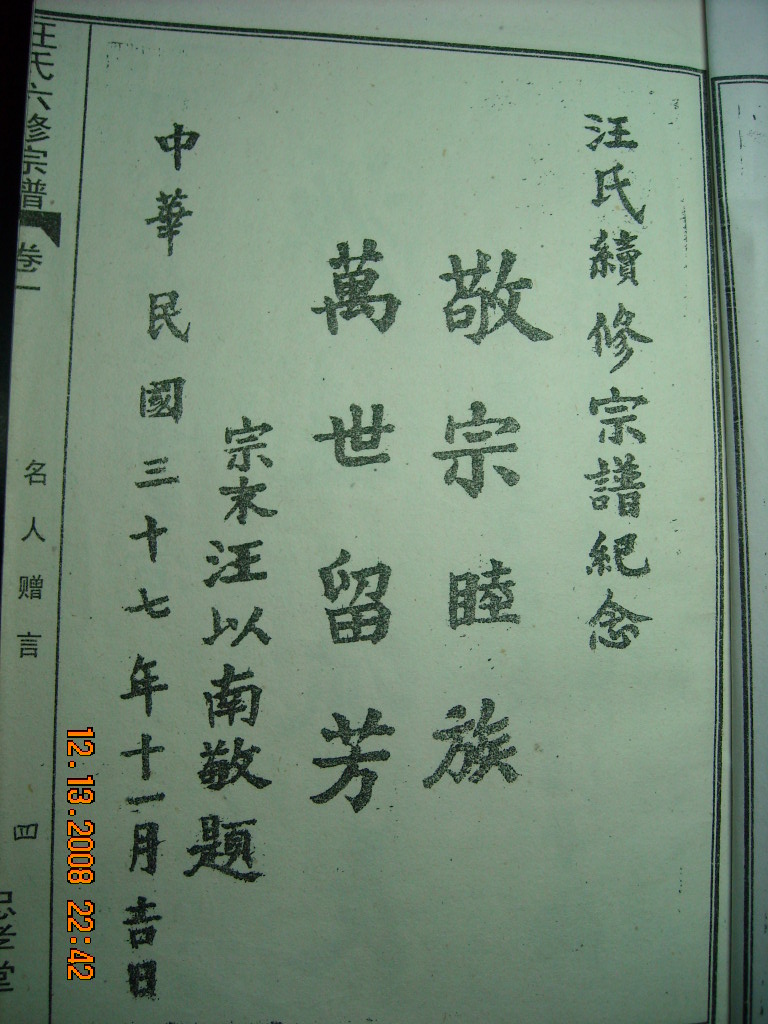 汪氏續修宗譜紀念
敬宗睦族
萬世留芳
宗末汪以南敬題
中華民國三十七年十一月吉日
汪氏六修宗谱
卷一
名人赠言
四
忠孝堂
12.13.2008 22:42